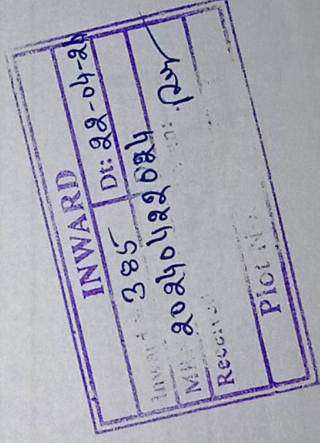 INWARD
Inward 385 Dt: 22-04-24
20240422024
Received
Plot